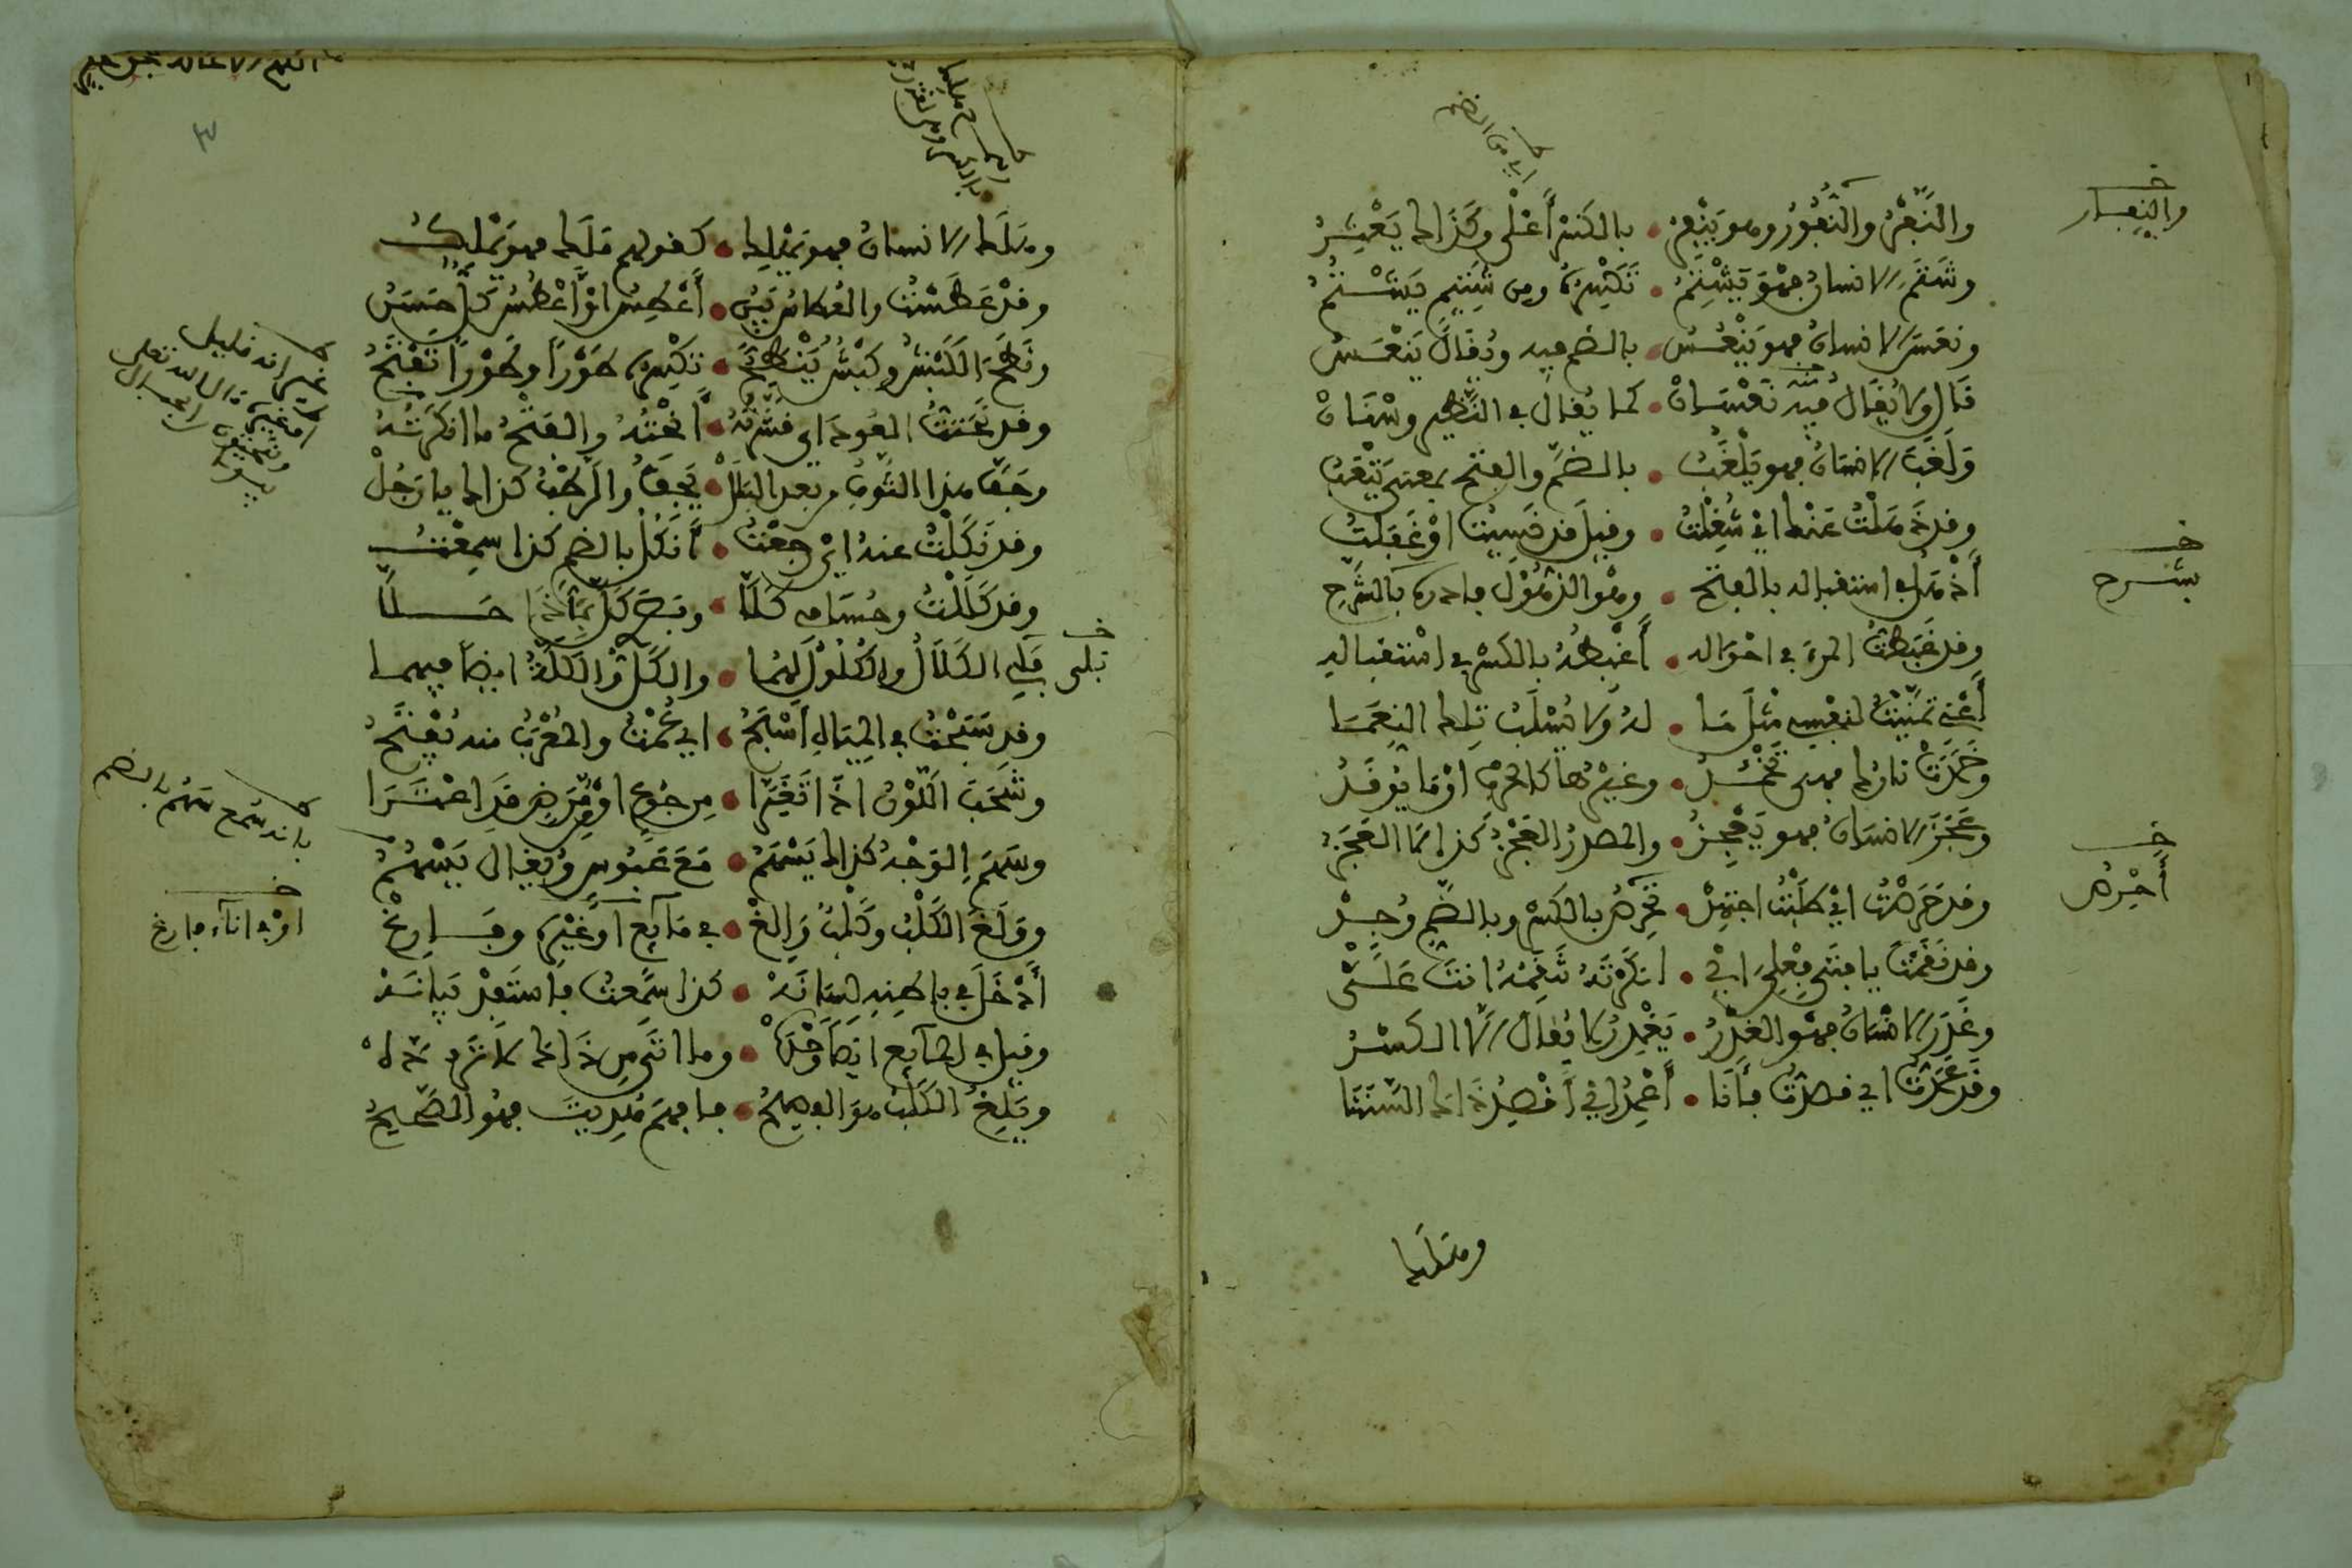 والنفر والنفور وهو ينفر • بالكسر أعلى وكذاك يعثر
وشتم الانسان فهو يشتم • تكسره ومن شتيم يشتم
ونعس الانسان فهو ينعس • بالضم فيه ويقال ينعس
قال ولا يقال فيه نعسان • كما يقال في النظير وسنان
ولغب الانسان فهو يلغب • بالضم والفتح بمعنى يتعب
وقد ذهلت عنك اي شغلت • وقيل قد نسيت او غفلت
أذهل في استقباله بالفتح • وهو الذهول فادره بالشرح
وقد غبطت المرء في احواله • أغبطه بالكسر في استقباله
أعني تمنيت لنفسي مثل ما • له ولا يسلب تلك النعما
وخمدت نارك فهي تخمد • وغيرها كالحرب او ما يوقد
وعجز الانسان فهو يعجز • والمصدر العجز كذا المعجز
وقد حرصت اي طلبت اجتهد • تحرص بالكسر وبالضم وجد
وقد نقمت يا فتى فعلي اي • انكرته تنقمه انت علي
وغدر الانسان فهو الغدر • يغدر لا يقال الا الكسر
وقد عمدت اي قصدت فأنا • أعمد اي أقصد ذاك السننا
وهلكا
والنفار
بشرح
أحرص
اي من الضم
وهلك الانسان فهو يهلك • كقولهم ملك فهو يملك
وقد عطست والعطاس بين • أعطس او أعطس كل حسن
ونطح الكبش وكبش ينطح • تكسره طورا وطورا تفتح
وقد نحت العود اي قشرته • أنحته والفتح ما انكرته
وجف هذا الثوب بعد البلل • يجف والرطب كذاك يا رجل
وقد نكلت عنه اي رجعت • أنكل بالضم كذا سمعت
وقد كللت وحسام كلا • وبصر كل فأما حلا
فلي الكلال والكلول لهما • والكل والكلة ايضا فيهما
وقد سبحت في المياه أسبح • اي عمت والمعرب منه يفتح
وشحب اللون اذا تغيرا • من جوع او مرض قد اعترا
وسهم الوجه كذاك يسهم • مع عبوس ويقال يسهم
وولغ الكلب وكلب والغ • في مائع او غيره وفارغ
أدخل في باطنه لسانه • كذا سمعت فاستفد بيانه
وقيل في المائع ايضا وحده • وما انثنى من ذاك لا ترده
ويلغ الكلب هو الفصيح • فافهم هديت فهو الصحيح
بلى
بانه سمع سهم بالضم
او في اناء فارغ